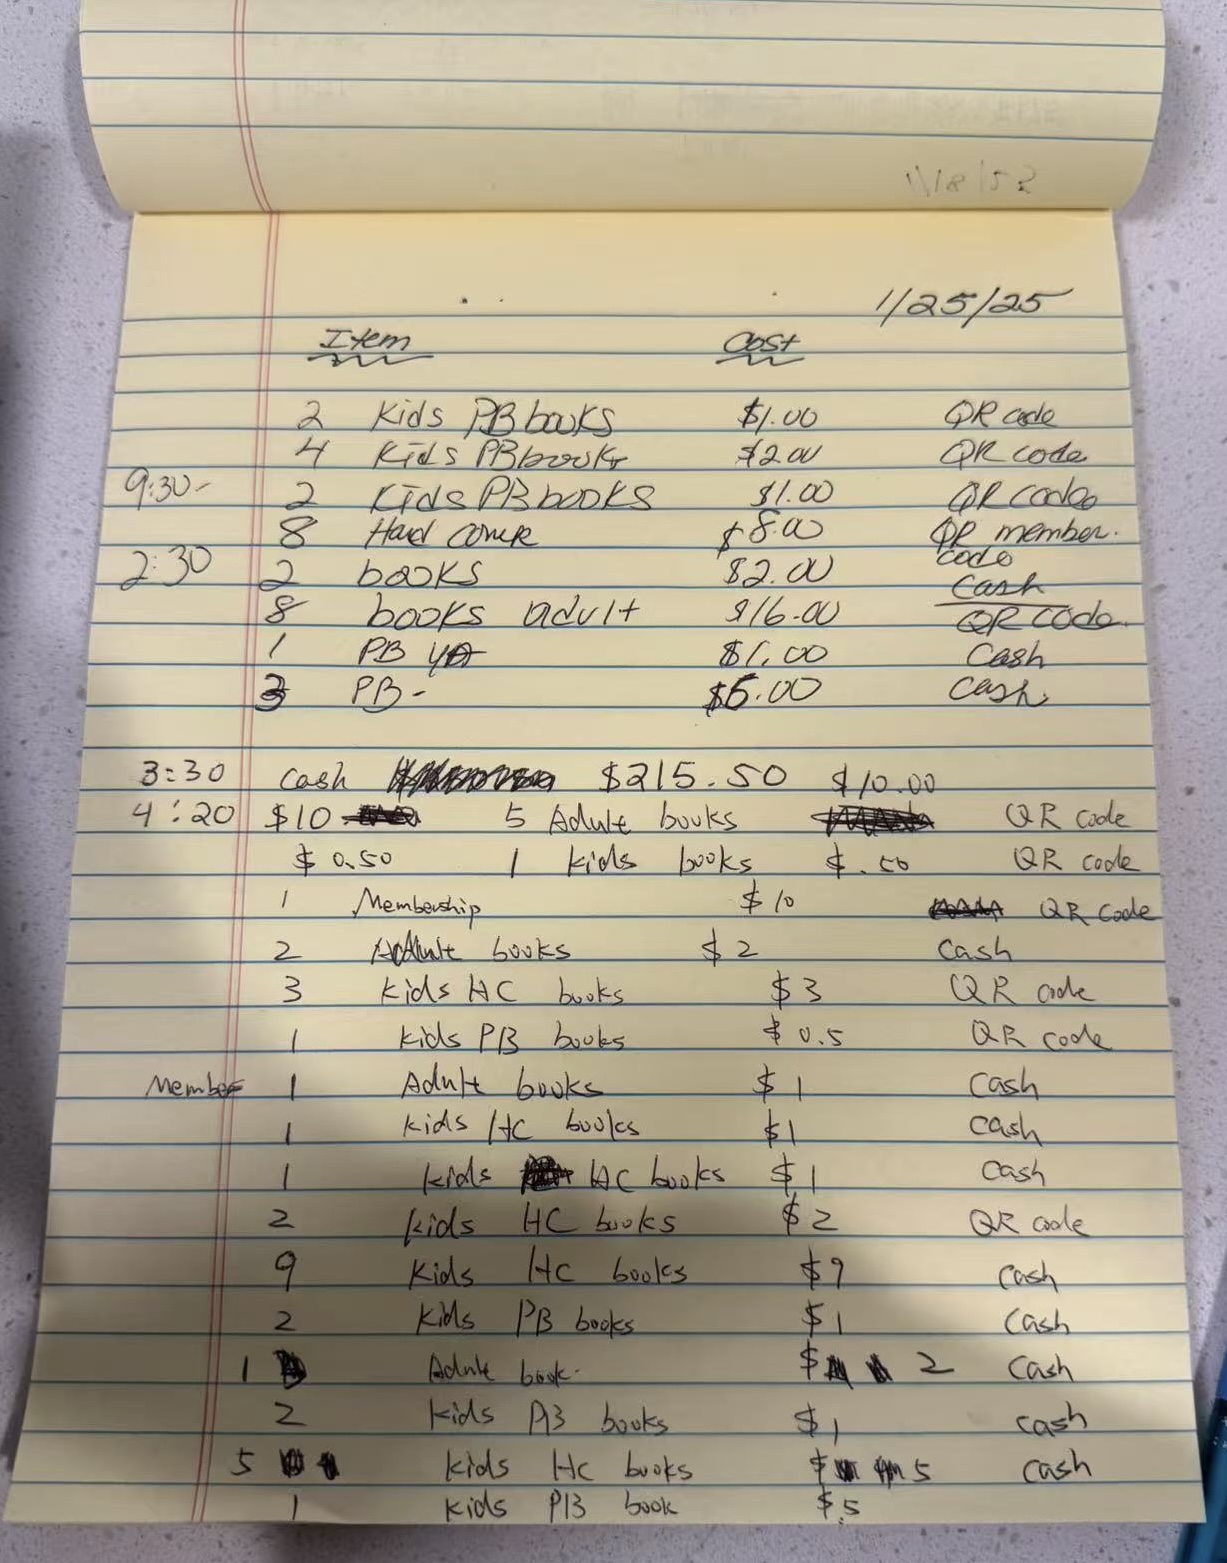 1/25/25
Item Cost
2 Kids PB books $1.00 QR code
4 Kids PB books $2.00 QR code
9:30- 2 Kids PB books $1.00 QR code
8 Hard cover $8.00 QR member.
code
2:30 2 books $2.00 Cash
8 books adult $16.00 QR code.
1 PB YA $1.00 Cash
3 PB- $5.00 Cash.
3:30 Cash $215.50 $10.00
4:20 $10 5 Adult books QR code
$0.50 1 kids books $.50 QR code
1 Membership $10 QR code
2 Adult books $2 Cash
3 kids HC books $3 QR code
1 kids PB books $0.5 QR code
Member 1 Adult books $1 Cash
1 kids HC books $1 Cash
1 kids HC books $1 Cash
2 kids HC books $2 QR code
9 kids HC books $9 Cash
2 kids PB books $1 Cash
1 Adult book. $ 2 Cash
2 kids PB books $1 Cash
5 kids HC books $ 5 Cash
1 kids PB book $.5